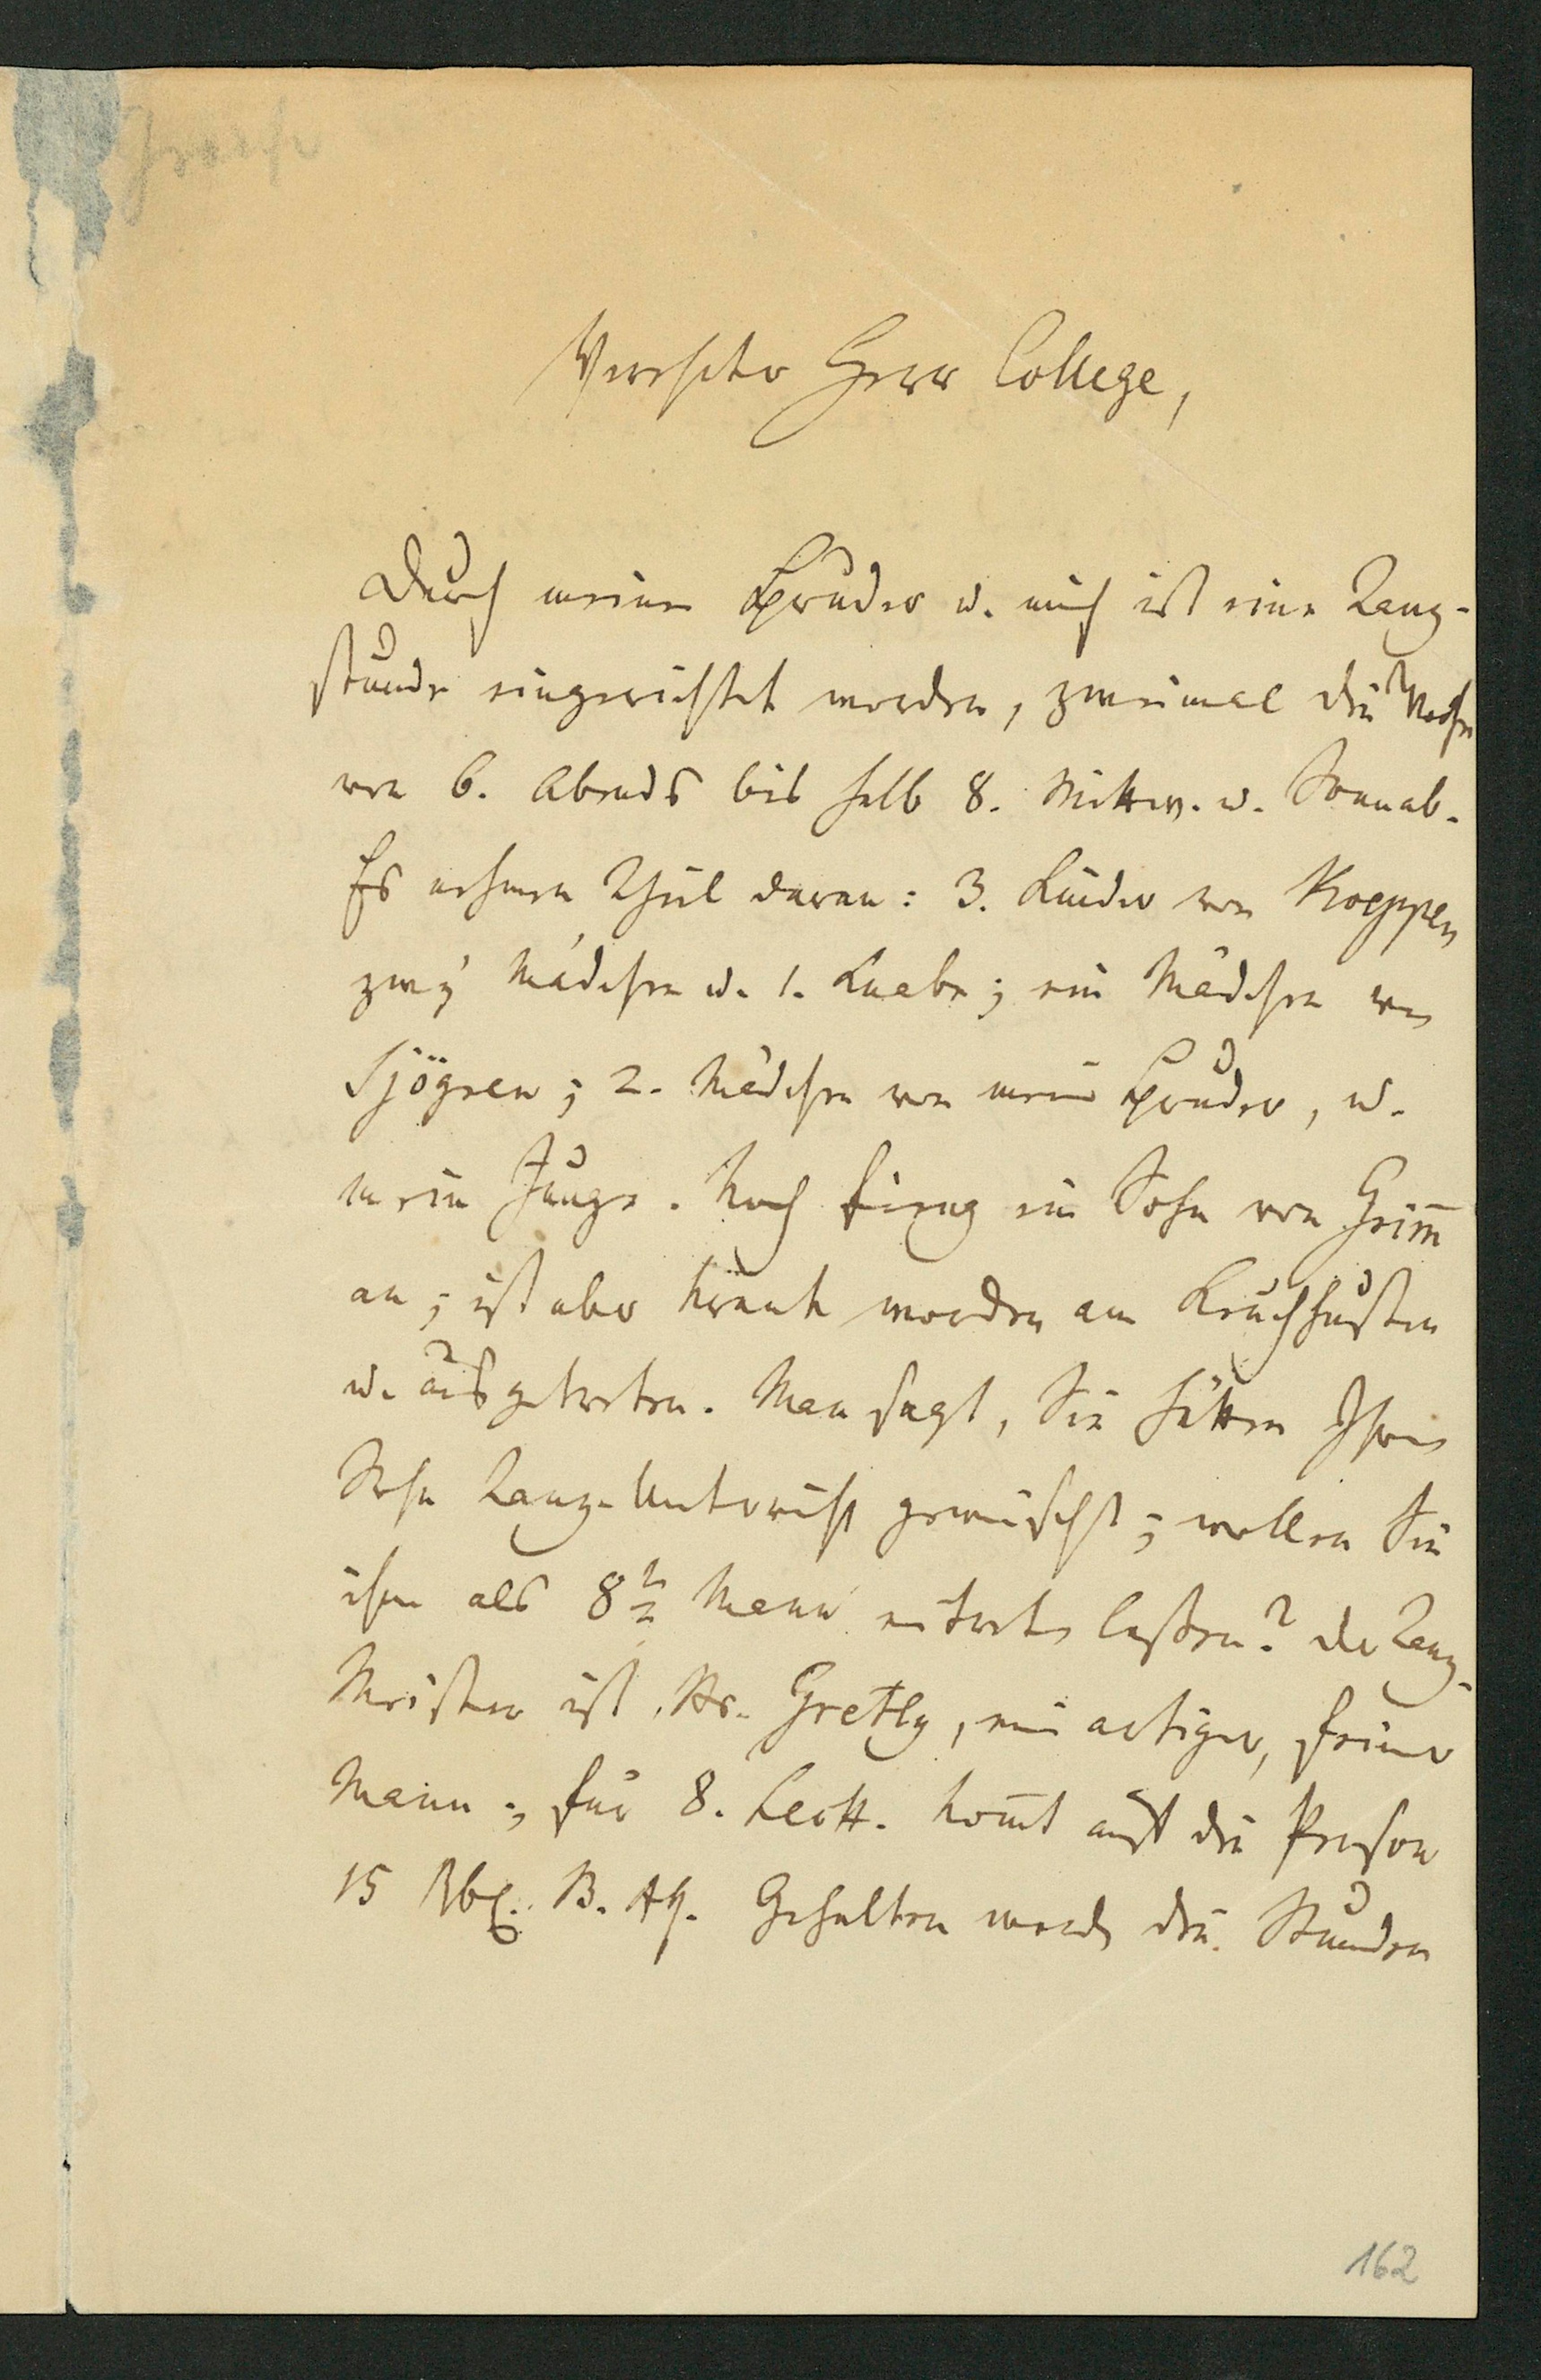 Graefe
Verehrter Herr College,
Durch meinen Bruder u. mich ist eine Tanz-
stunde eingerichtet worden, zweimal die Woche
von 6. Abends bis halb 8. Mittw. u. Sonnab.
Es nehmen Theil daran: 3. Kinder von Koeppen
zwey Mädchen u. 1. Knabe; ein Mädchen von
Sjögren; 2. Mädchen von mein Bruder, u.
mein Junge. Noch fieng ein Sohn von Grim̄
an; ist aber krank worden am Keuchhusten
u. ausgetreten. Man sagt, Sie hätten Ihren
Sohn Tanz-Unterricht gewünscht; wollen Sie
ihn als 8tn Mann eintreten laßen? Der Tanz-
Meister ist Hr. Gretly, ein artiger, feiner
Mann; für 8. Lectt. kom̄t auf die Person
15 Rbl. B. A. Gehalten werden die Stunden
162